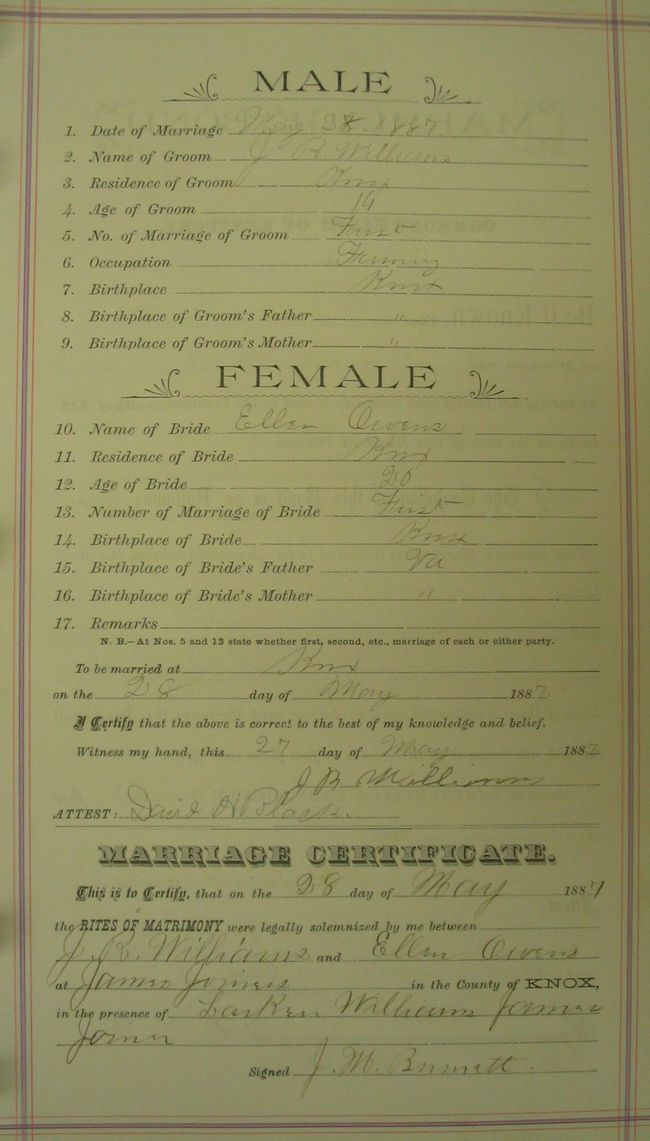 MALE
1. Date of Marriage May 28. 1887.
2. Name of Groom J R. Williams
3. Residence of Groom Knox
4. Age of Groom 19
5. No. of Marriage of Groom First
6. Occupation
7. Birthplace Knox
8. Birthplace of Groom's Father "
9. Birthplace of Groom's Mother "
FEMALE
10. Name of Bride Ellen Owens
11. Residence of Bride Knox
12. Age of Bride 20
13. Number of Marriage of Bride First
14. Birthplace of Bride Knox
15. Birthplace of Bride's Father Va
16. Birthplace of Bride's Mother "
17. Remarks
N. B.—At Nos. 5 and 13 state whether first, second, etc., marriage of each or either party.
To be married at Knox
on the 28 day of May 1887.
I Certify that the above is correct to the best of my knowledge and belief.
Witness my hand, this 27 day of May 1887
J R Williams
ATTEST: David H Black.
MARRIAGE CERTIFICATE.
This is to Certify, that on the 28 day of May 1887
the RITES OF MATRIMONY were legally solemnized by me between
J. R. Williams and Ellen Owens
at James in the County of KNOX,
in the presence of Larken Williams James
Signed J. M.